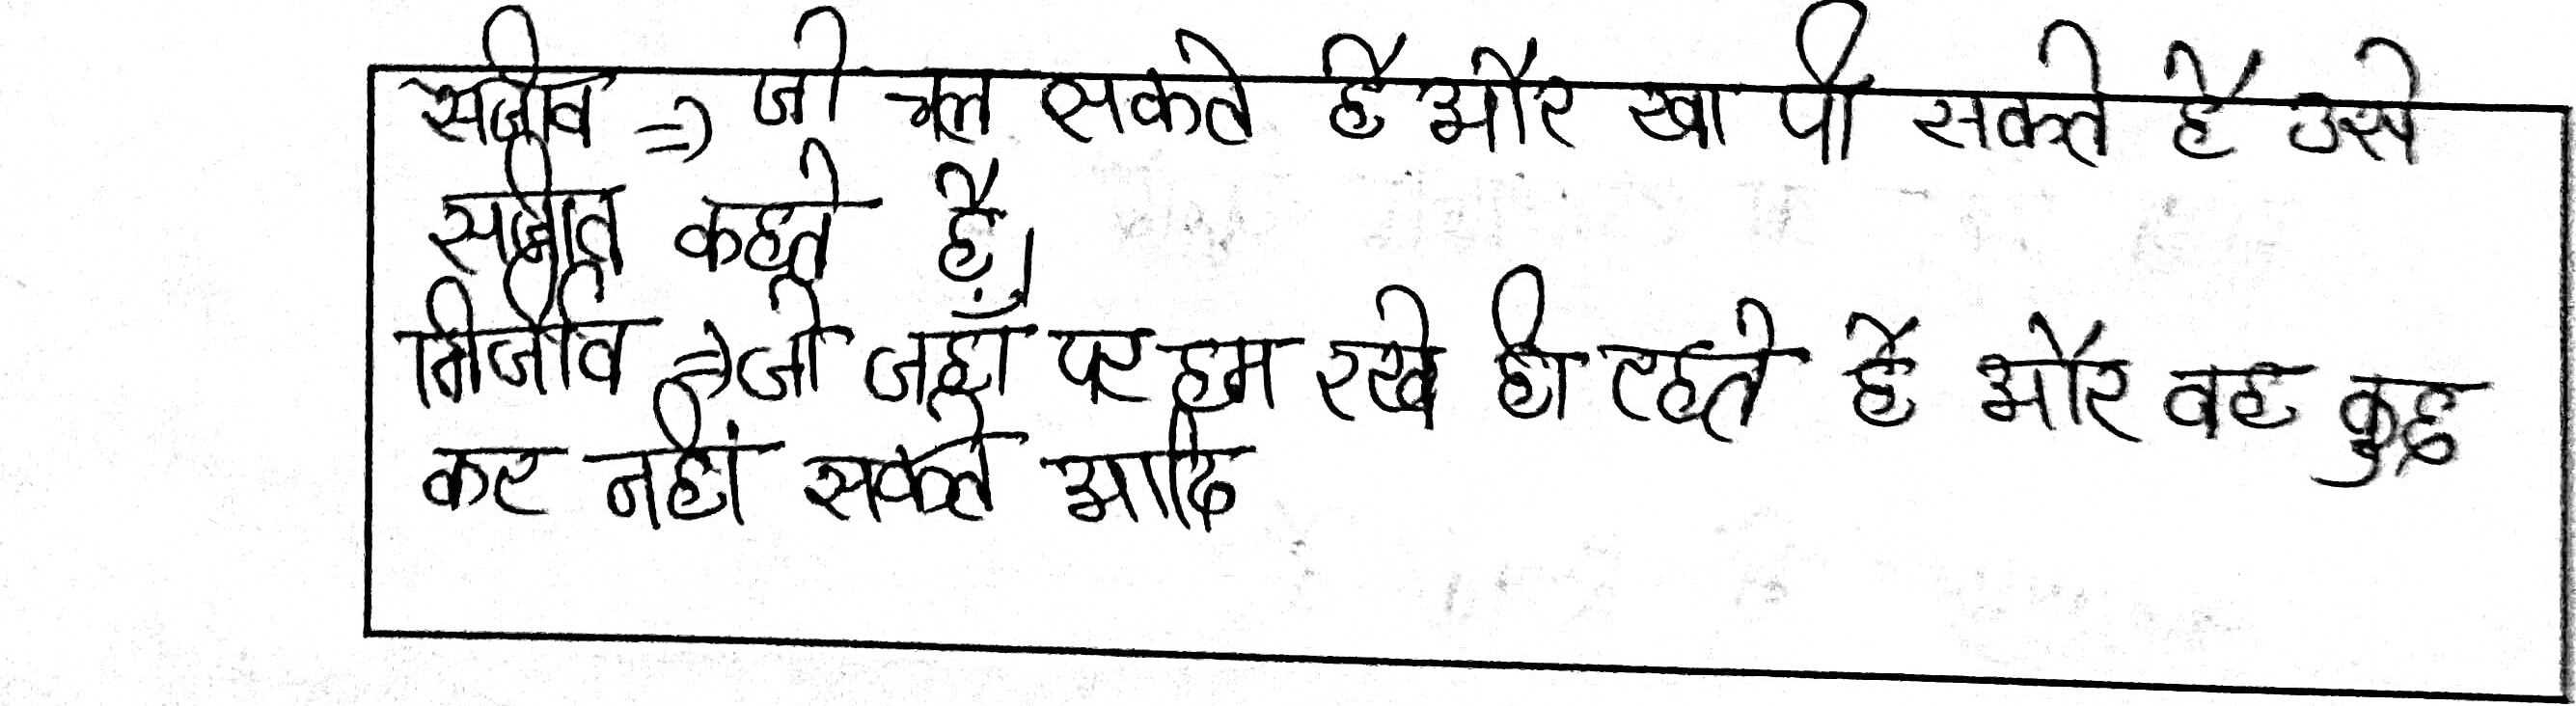 सजीव => जो चल सकते है और खा पी सकते है उसे
सजीव कहते है।
निर्जीव => जो जहाँ पर हम रखे ही रहते है और वह कुछ
कर नहीं सकते आदि